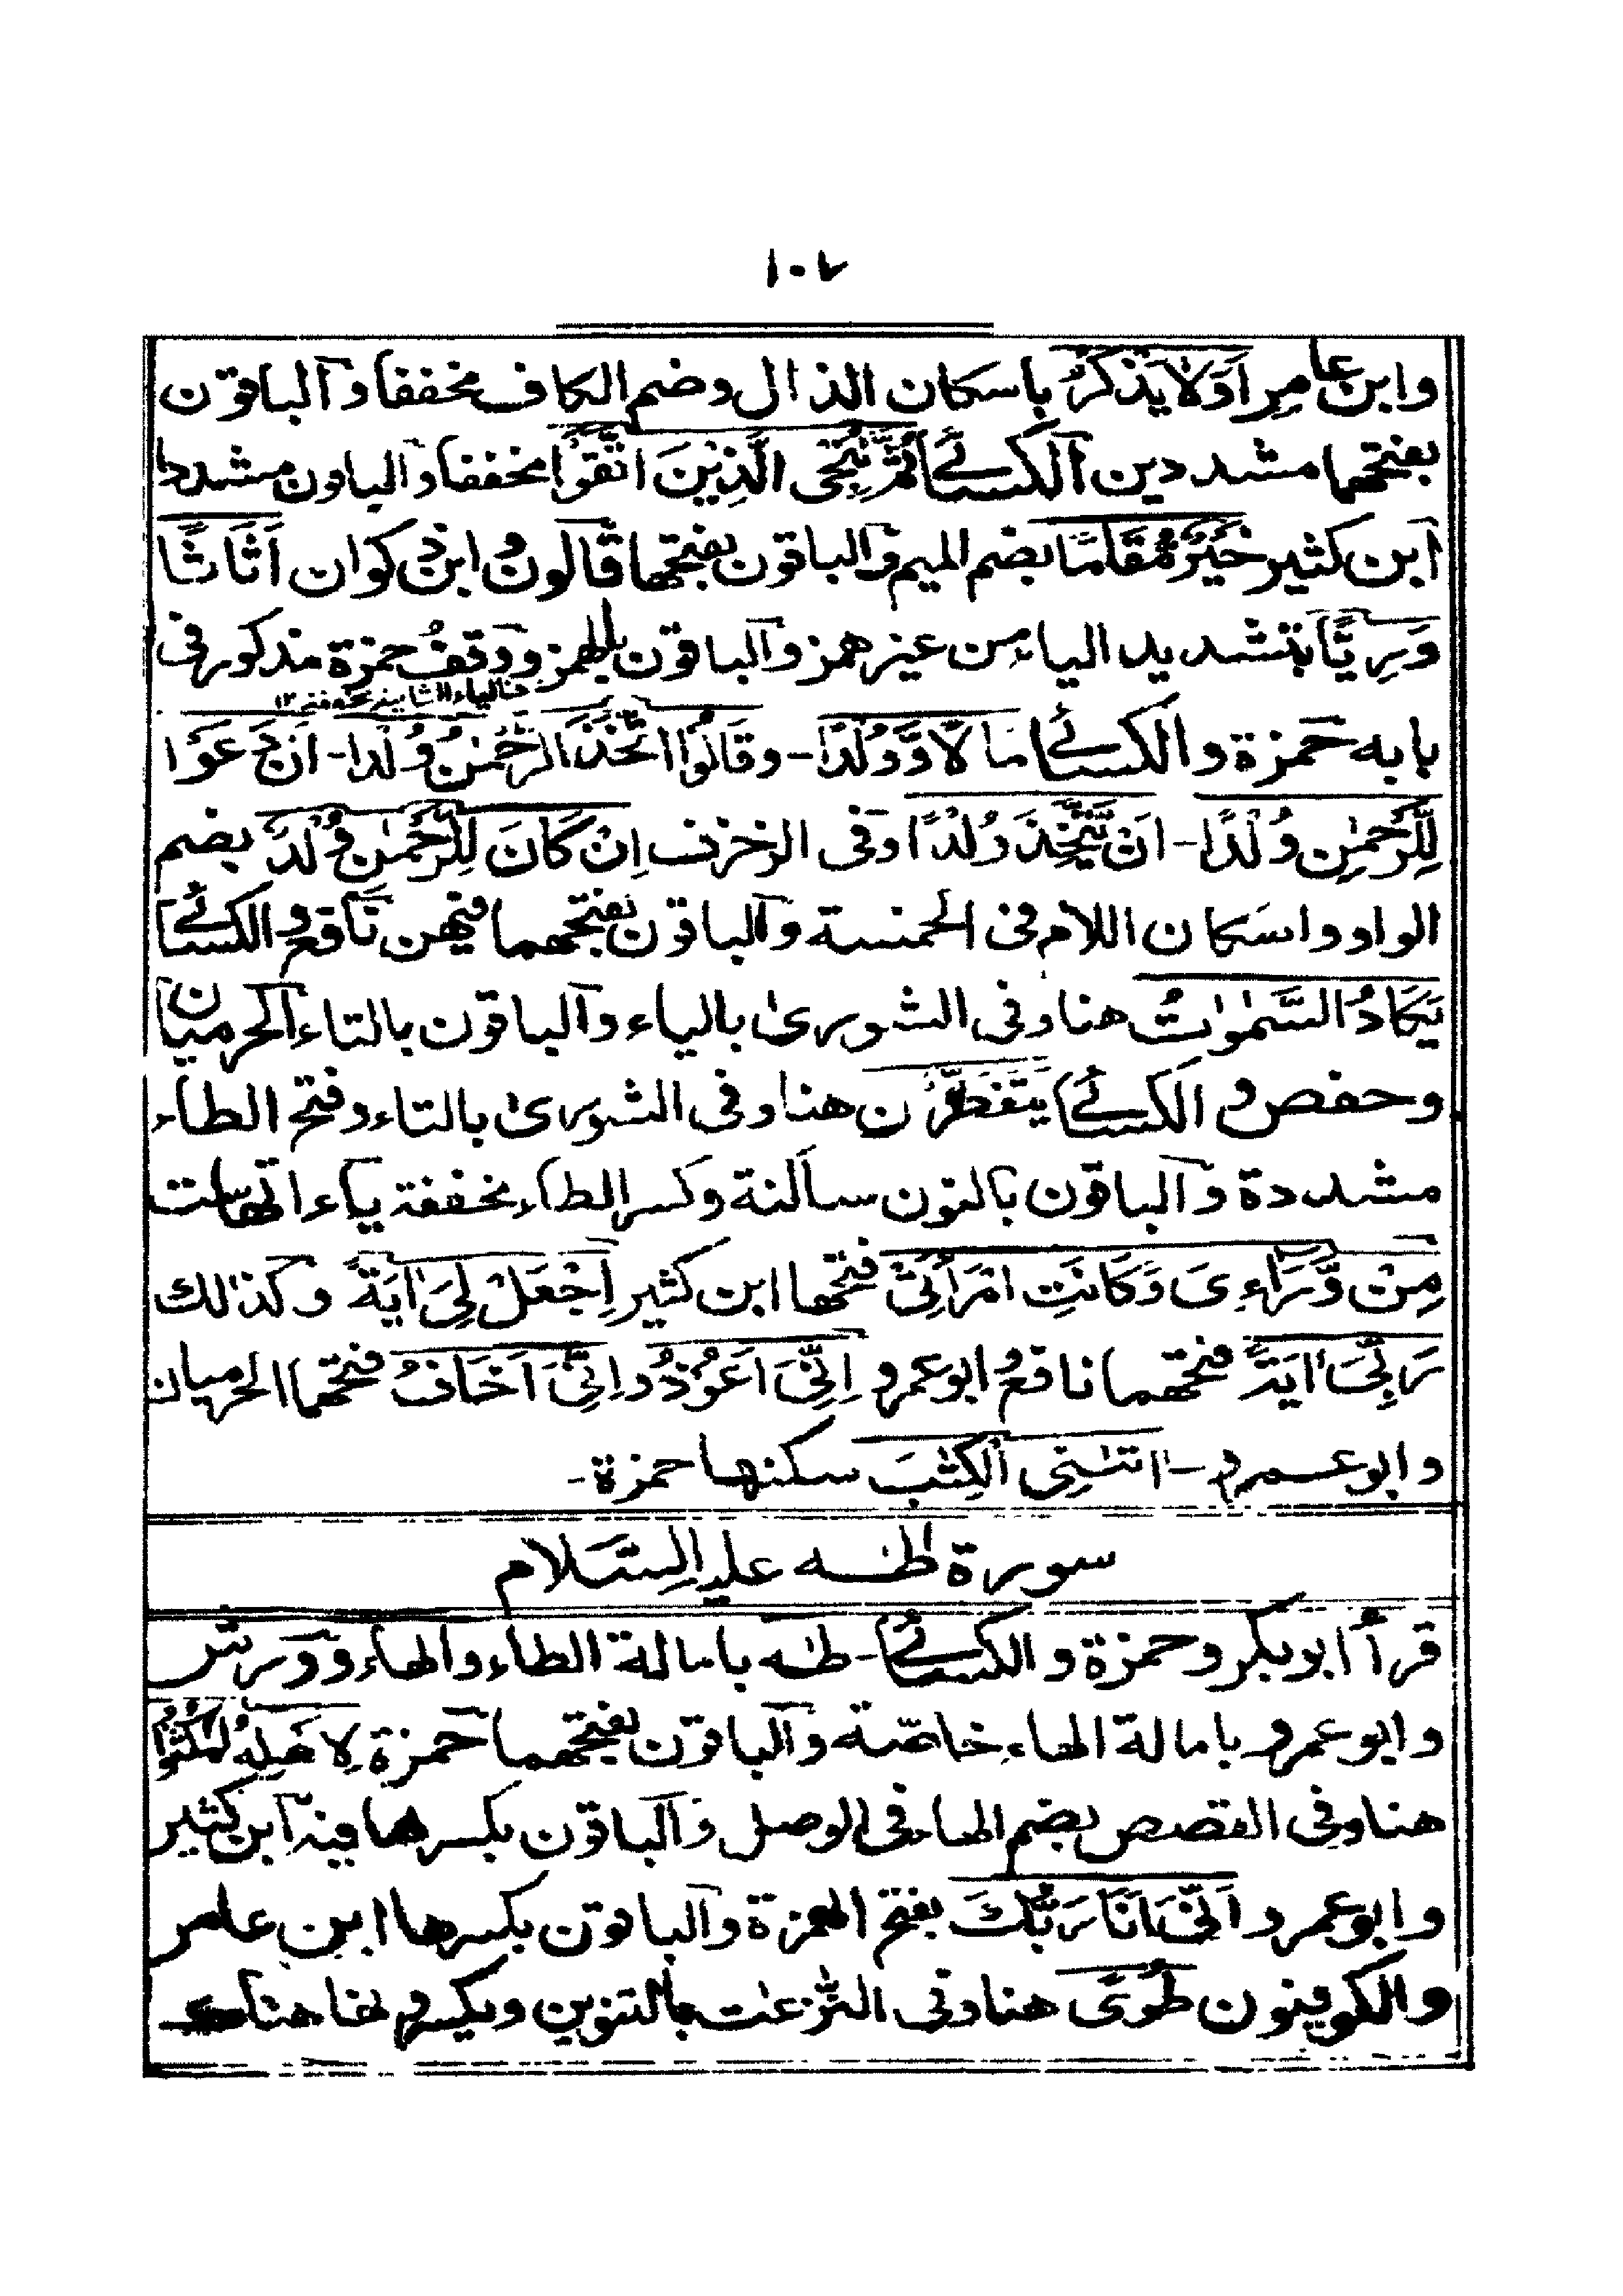 ١٠٧
وابن عامر اَوَلَا يَذْكُرُ باسكان الذال وضم الكاف مخففا والباقون
بفتحهما مشددين الكسائي ثُمَّ نُنْجِى الَّذِيْنَ اتَّقَوْا مخففا والباون مشددا
ابن كثير خَيْرٌ مُّقَامًا بضم الميم والباقون بفتحها قالون وابن ذكوان اَثَاثًا
وَرِيًّا بتشديد الياء من غير همز والباقون بالهمز ووقف حمزة مذكور فى
بابه حمزة والكسائي مالا وَّوُلْدًا - وقَالُوا اتَّخَذَ الرَّحْمٰنُ وُلْدا - اَنْ دَعَوْا
لِلرَّحْمٰنِ وُلْدًا - اَنْ يَّتَّخِذَ وُلْدًا وفى الزخرف اِنْ كَانَ لِلرَّحْمٰنِ وُلْدٌ بضم
الواو واسكان اللام فى الخمسة والباقون بفتحهما فيهن نافع والكسائي
يَكَادُ السَّمٰوٰتُ هنا وفى الشورىٰ بالياء والباقون بالتاء الحرميان
وحفص والكسائي يَتَفَطَّرْن هنا وفى الشورىٰ بالتاء وفتح الطاء
مشددة والباقون بالنون ساكنة وكسر الطاء مخففة ياءاتها ست
مِنْ وَّرَاءِىَ وَكَانَتِ امْرَأَتِىْ فتحها ابن كثير اِجْعَلْ لِىَ اٰيَةً وكذٰلك
رَبِّىَ اٰيَةً فتحهما نافع وابوعمرو اِنِّىَ اَعُوْذُ واِنِّىَ اَخَافُ فتحهما الحرميان
وابوعمرو - اٰتٰنِى الْكِتٰبَ سكنها حمزة -
سورة طٰه عليه السَّلام
قرأ ابوبكر وحمزة والكسائي - طٰه بامالة الطاء والهاء وورش
وابوعمرو بامالة الهاء خاصّة والباقون بفتحهما حمزة لِاَهْلِهُ امْكُثُوْا
هنا وفى القصص بضم الهاء فى الوصل والباقون بكسرها فيه ابن كثير
وابوعمرو اَنِّىَ اَنَا رَبُّكَ بفتح الهمزة والباقون بكسرها ابن عامر
والكوفيون طُوًى هنا وفى النّٰزعٰت بالتنوين ويكسرو نها هنا